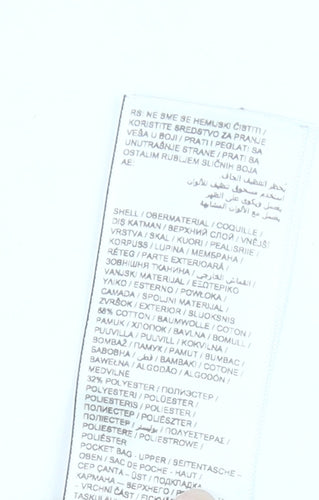 RS: NE SME SE HEMIJSKI ČISTITI /
KORISTITE SREDSTVO ZA PRANJE
VEŠA U BOJI / PRATI I PEGLATI SA
UNUTRAŠNJE STRANE / PRATI SA
OSTALIM RUBLJEM SLIČNIH BOJA
AE:
يحظر التنظيف الجاف
استخدم مسحوق تنظيف للألوان
يغسل ويكوى على الظهر
يغسل مع الألوان المشابهة
SHELL / OBERMATERIAL / COQUILLE /
DIŞ KATMAN / ВЕРХНИЙ СЛОЙ / VNĚJŠÍ
VRSTVA / SKAL / KUORI / PEALISRIIE /
KORPUSS / LUPINA / МЕМБРАНА /
RÉTEG / PARTE EXTERIOARĂ /
ЗОВНІШНЯ ТКАНИНА / القماش الخارجي /
VANJSKI MATERIJAL / ΕΞΩΤΕΡΙΚΟ
ΥΛΙΚΟ / ESTERNO / POWŁOKA /
CAMADA / SPOLJNI MATERIJAL /
ZVRŠOK / EXTERIOR / SLUOKSNIS
68% COTTON / BAUMWOLLE / COTON /
PAMUK / ХЛОПОК / BAVLNA / BOMULL /
PUUVILLA / PUUVILL / KOKVILNA /
BOMBAŽ / ПАМУК / PAMUT / BUMBAC /
БАВОВНА / قطن / ΒΑΜΒΑΚΙ / COTONE /
BAWEŁNA / ALGODÃO / ALGODÓN /
MEDVILNĖ
32% POLYESTER / ПОЛИЭСТЕР /
POLYESTERI / POLÜESTER /
POLIESTERIS / POLIESTER /
ПОЛИЕСТЕР / POLIÉSZTER /
ПОЛІЕСТЕР / بوليستر / ΠΟΛΥΕΣΤΕΡΑΣ /
POLIESTERE / POLIESTROWE /
POLIÉSTER
POCKET BAG - UPPER / SEITENTASCHE -
OBEN / SAC DE POCHE - HAUT /
CEP ÇANTA - ÜST / ПОДКЛАДКА
КАРМАНА — ВЕРХНЕГО
- VRCHNÍ ČÁST /